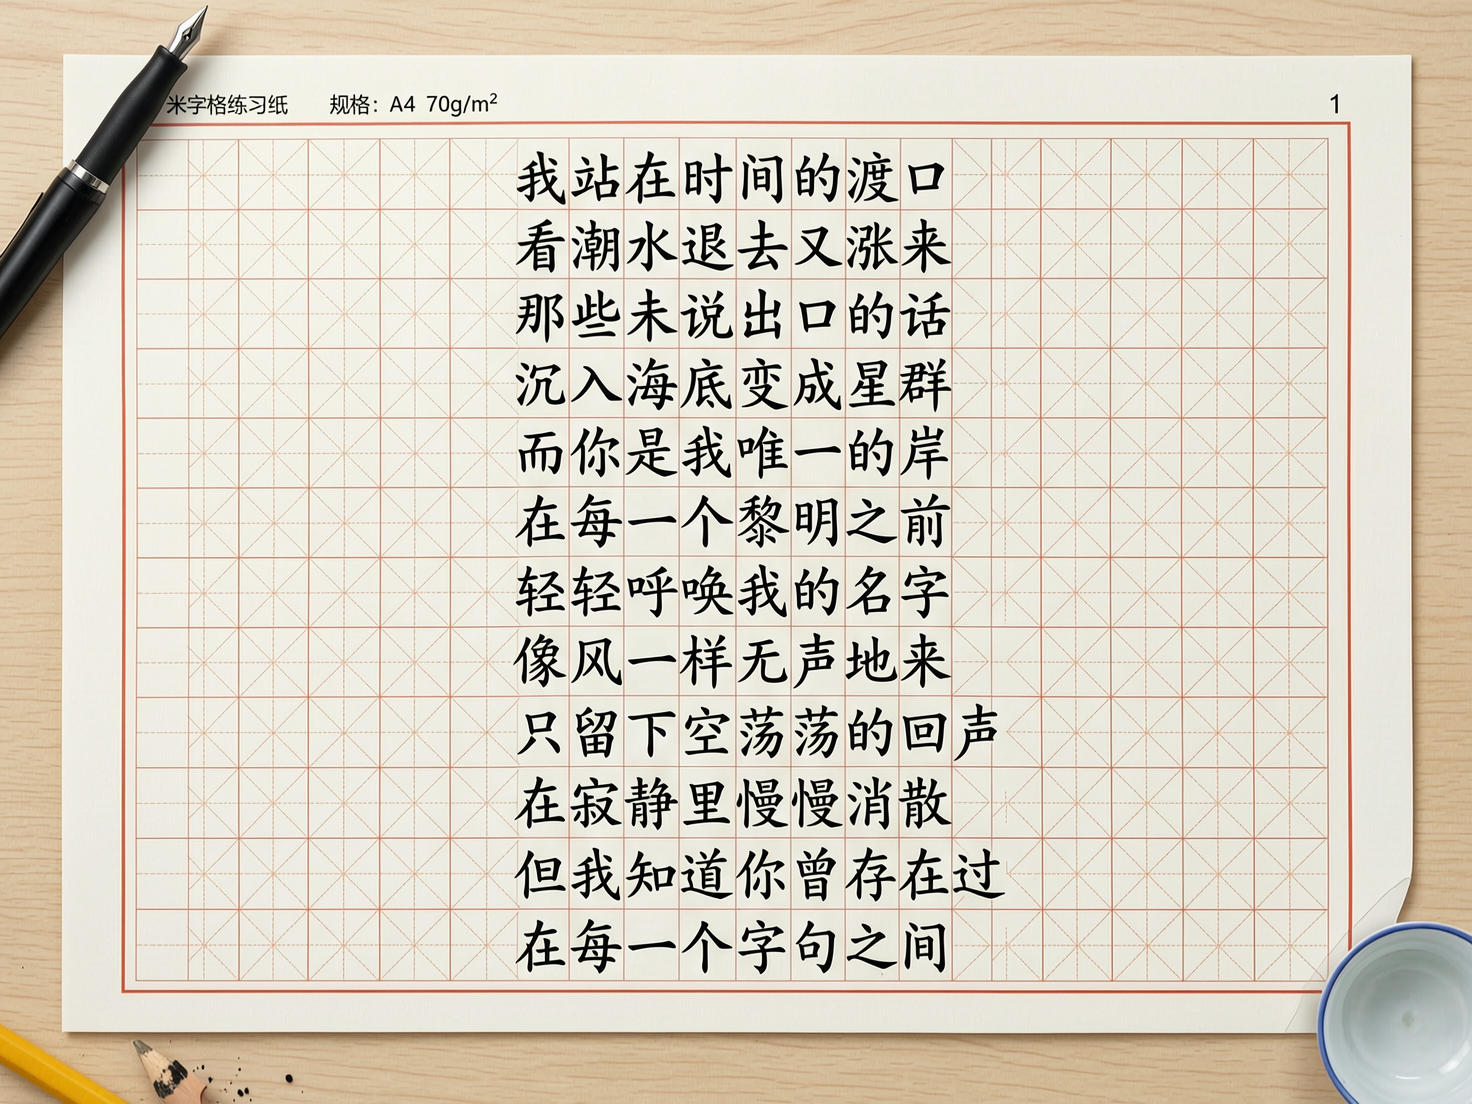 米字格练习纸 规格：A4 70g/m² 1
我站在时间的渡口
看潮水退去又涨来
那些未说出口的话
沉入海底变成星群
而你是我唯一的岸
在每一个黎明之前
轻轻呼唤我的名字
像风一样无声地来
只留下空荡荡的回声
在寂静里慢慢消散
但我知道你曾存在过
在每一个字句之间